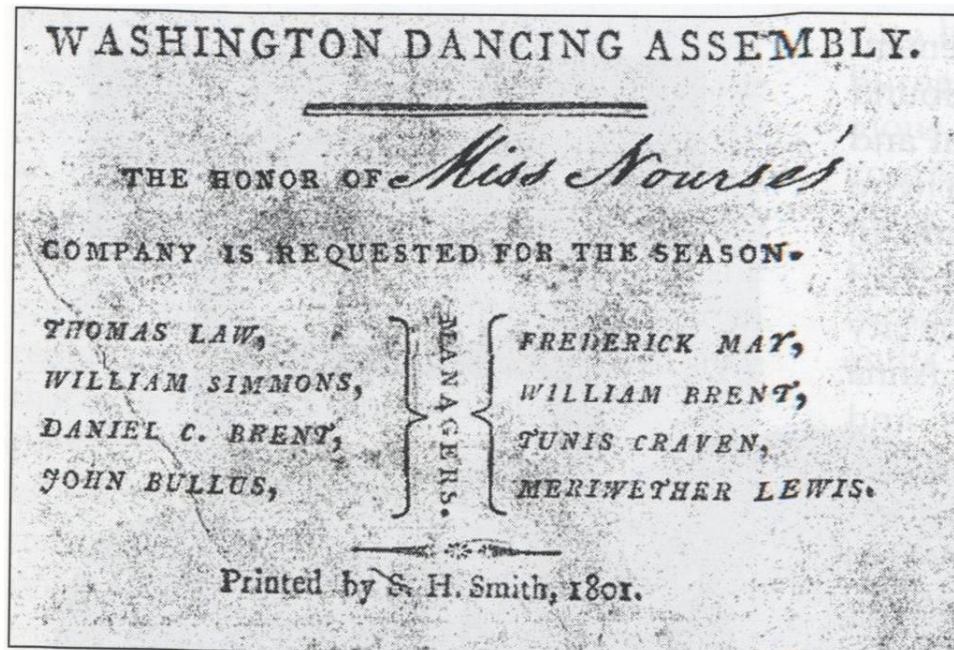 WASHINGTON DANCING ASSEMBLY.
THE HONOR OF Miss Nourses'
COMPANY IS REQUESTED FOR THE SEASON.
THOMAS LAW,
WILLIAM SIMMONS,
DANIEL C. BRENT,
JOHN BULLUS,
MANAGERS.
FREDERICK MAY,
WILLIAM BRENT,
TUNIS CRAVEN,
MERIWETHER LEWIS.
Printed by S. H. Smith, 1801.